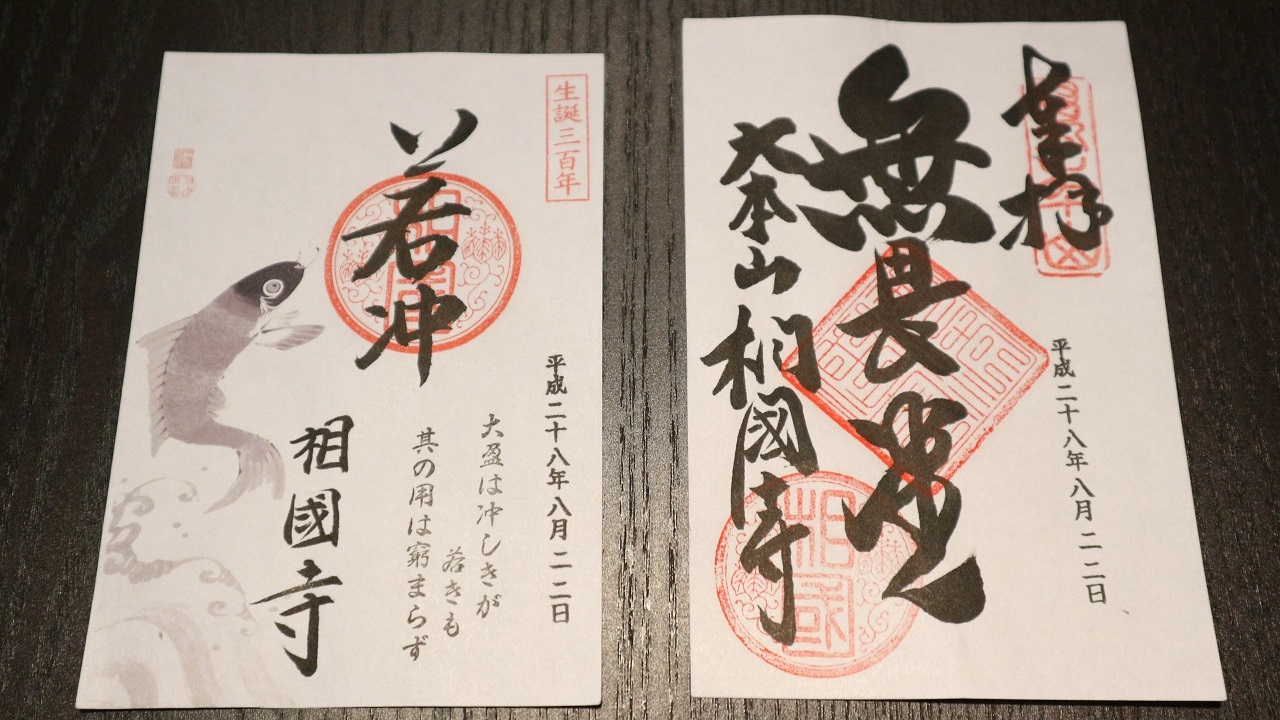 生誕三百年
平成二十八年八月二二日
若冲
大盈は冲しきが
若きも
其の用は窮まらず
相國寺
奉拝
平成二十八年八月二二日
無畏堂
大本山相國寺
相國